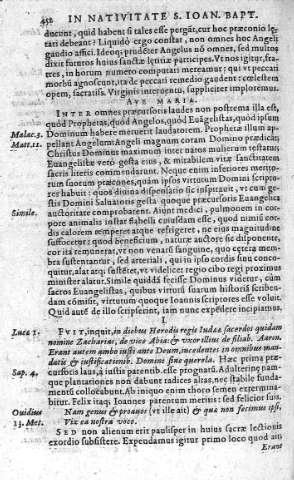 452 IN NATIVITATE S. IOAN. BAPT.
ducunt, quid habent si tales esse pergāt, cur hoc præconio læ-
tati debeant? Liquidò ergo constat, non omnes hoc Angeli
gaudio affici. Ideoq; prudēter Angelus nō omnes, sed multos
dixit futuros huius sanctæ lætitiæ participes. Vt nos igitur, fra-
tres, in horum numero computari mereamur; qui vt peccati
morbū agnoscūt, ita de peccati remedio gaudent: cœlestem
opem, sacratiss. Virginis interuentu, suppliciter imploremus.
AVE MARIA.
INTER omnes præcursoris laudes non postrema illa est,
quòd Prophetas, quòd Angelos, quòd Euāgelistas, quòd ipsum
Malac. 3. Dominum habere meruerit laudatorem. Propheta illum ap-
Matt. 11. pellant Angelum: Angeli magnum coram Domino prædicāt,
Christus Dominus maximum inter natos mulierum testatur,
Euangelistæ verò gesta eius, & mirabilem vitæ sanctitatem
sacris literis commendarunt. Neque enim inferiores merito-
rum suorum præcones, quàm ipsos virtutum Domini scripto-
res habuit: quos diuina dispensatio sic inspirauit, vt cum gesti
Domini Saluatoris gesta quoque præcursoris Euangelica
Simile. auctoritate comprobarent. Aiunt medici, pulmonem in cor-
pore animalis instar flabelli cuiusdam esse, quod nimiū cor-
dis calorem temperet atque refrigeret, ne eius magnitudine
suffocetur: quod beneficium, naturæ auctore sic disponente,
cor ita remunerat, vt non venali sanguine, quo cętera mem-
bra sustentantur, sed arteriali, quì in ipso cordis sinu conco-
quitur, alat atq; sustētet, vt videlicet regio cibo regi proximus
minister alatur. Simile quidda fecisse Dominus videtur, cùm
sacros Euangelistas, quibus virtutū suarum historiā scriben-
dam cōmisit, virtutum quoque Ioannis scriptores esse voluit.
Quid autē de illo scripserint, iam nunc expēdere incipiamus.
I.
Luca 1. FVIT, inquit, in diebus Herodis regis Iudæ sacerdos quidam
nomine Zacharias, de vice Abia: & vxor illius de filiab. Aaron.
Erant autem ambo iusti ante Deum, incedentes in omnibus man-
datis & iustificationib. Domini sine querela. Hæc prima præ-
Sap. 4. cursoris laus, à iustis parentib. esse prognatū. Adulterinę nam-
que plantationes non dabunt radices altas, nec stabile funda-
mentū collocabunt. Ab iniquo enim thoro semen extermina-
bitur. Felix itaq; Ioannes parentum meritis: sed felicior suis.
Ouidius Nam genus & proauos (vt ille ait) & quæ non fecimus ipsi,
13. Met. Vix ea nostra voco.
SED non alienum erit paulisper in huius sacræ lectionis
exordio subsistere. Expendamus igitur primo loco quòd ait
Erant